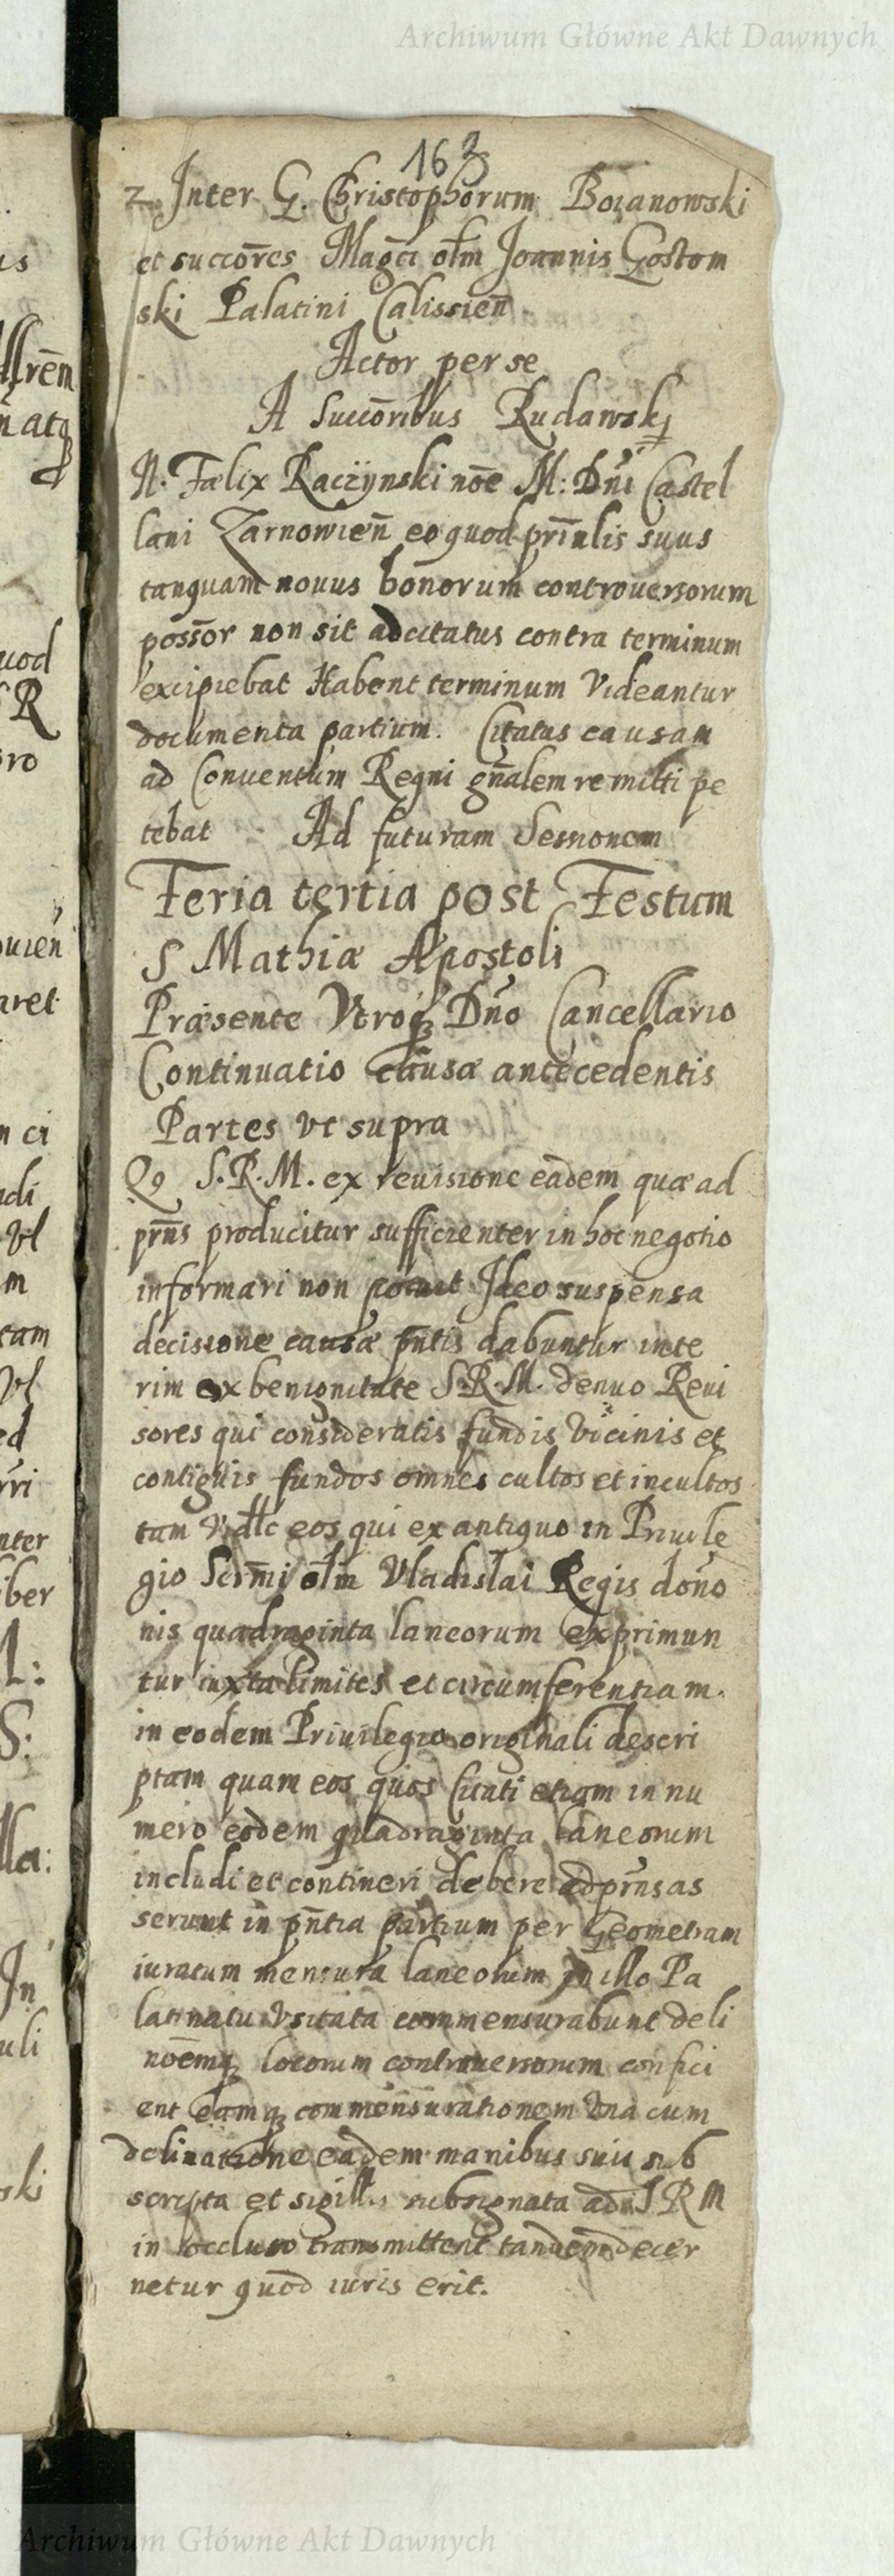 Archiwum Główne Akt Dawnych
163
2 Inter G. Christophorum Bozanowski
et succōres Magci olm Joannis Gostom
ski Palatini Calissieñ
Actor per se
A succōribus Rudawskj
N. Fælix Racżÿnski nōe M: Dñi Castel
lani Zarnowieñ eo quod prīnlis suus
tanquam nouus bonorum controuersorum
possōr non sit adcitatus contra terminum
excipiebat Habent terminum Videantur
documenta partium. Citatus causam
ad Conuentum Regni gñalem remitti pe
tebat Ad futuram Sessionem
Feria tertia post Festum
S Mathiæ Apostoli
Præsente Vtroq₃ Dño Cancellario
Continuatio causæ antecedentis
Partes vt supra
Qꝫ S.R.M. ex reuisione eadem quæ ad
prñs producitur sufficienter in hoc negotio
informari non potuit Ideo suspensa
decisione causæ pñtis dabuntur inte
rim ex benignitate S.R.M. denuo Reui
sores qui consideratis fundis vicinis et
contiguis fundos omnes cultos et incultos
tam vidlc eos qui ex antiquo in Priuile
gio Serm̄i olm Vladislai Regis dono
nis quadraginta laneorum exprimun
tur iuxta limites et circumferentiam
in eodem Priuilegio originali descri
ptam quam eos quos Citati etiam in nu
mero eodem quadraginta laneorum
includi et contineri debere ad prñs as
serunt in pñtia partium per Geometram
iuratum mensura laneorum in illo Pa
latinatu vsitata commensurabunt deli
nōemq₃ locorum controuersorum confici
ent eamq₃ commensurationem vna cum
delinatione eadem manibus suis sub
scripta et sigillis subsignata ad S R M
in occluso transmittent tandem decer
netur quod iuris erit.
Archiwum Główne Akt Dawnych